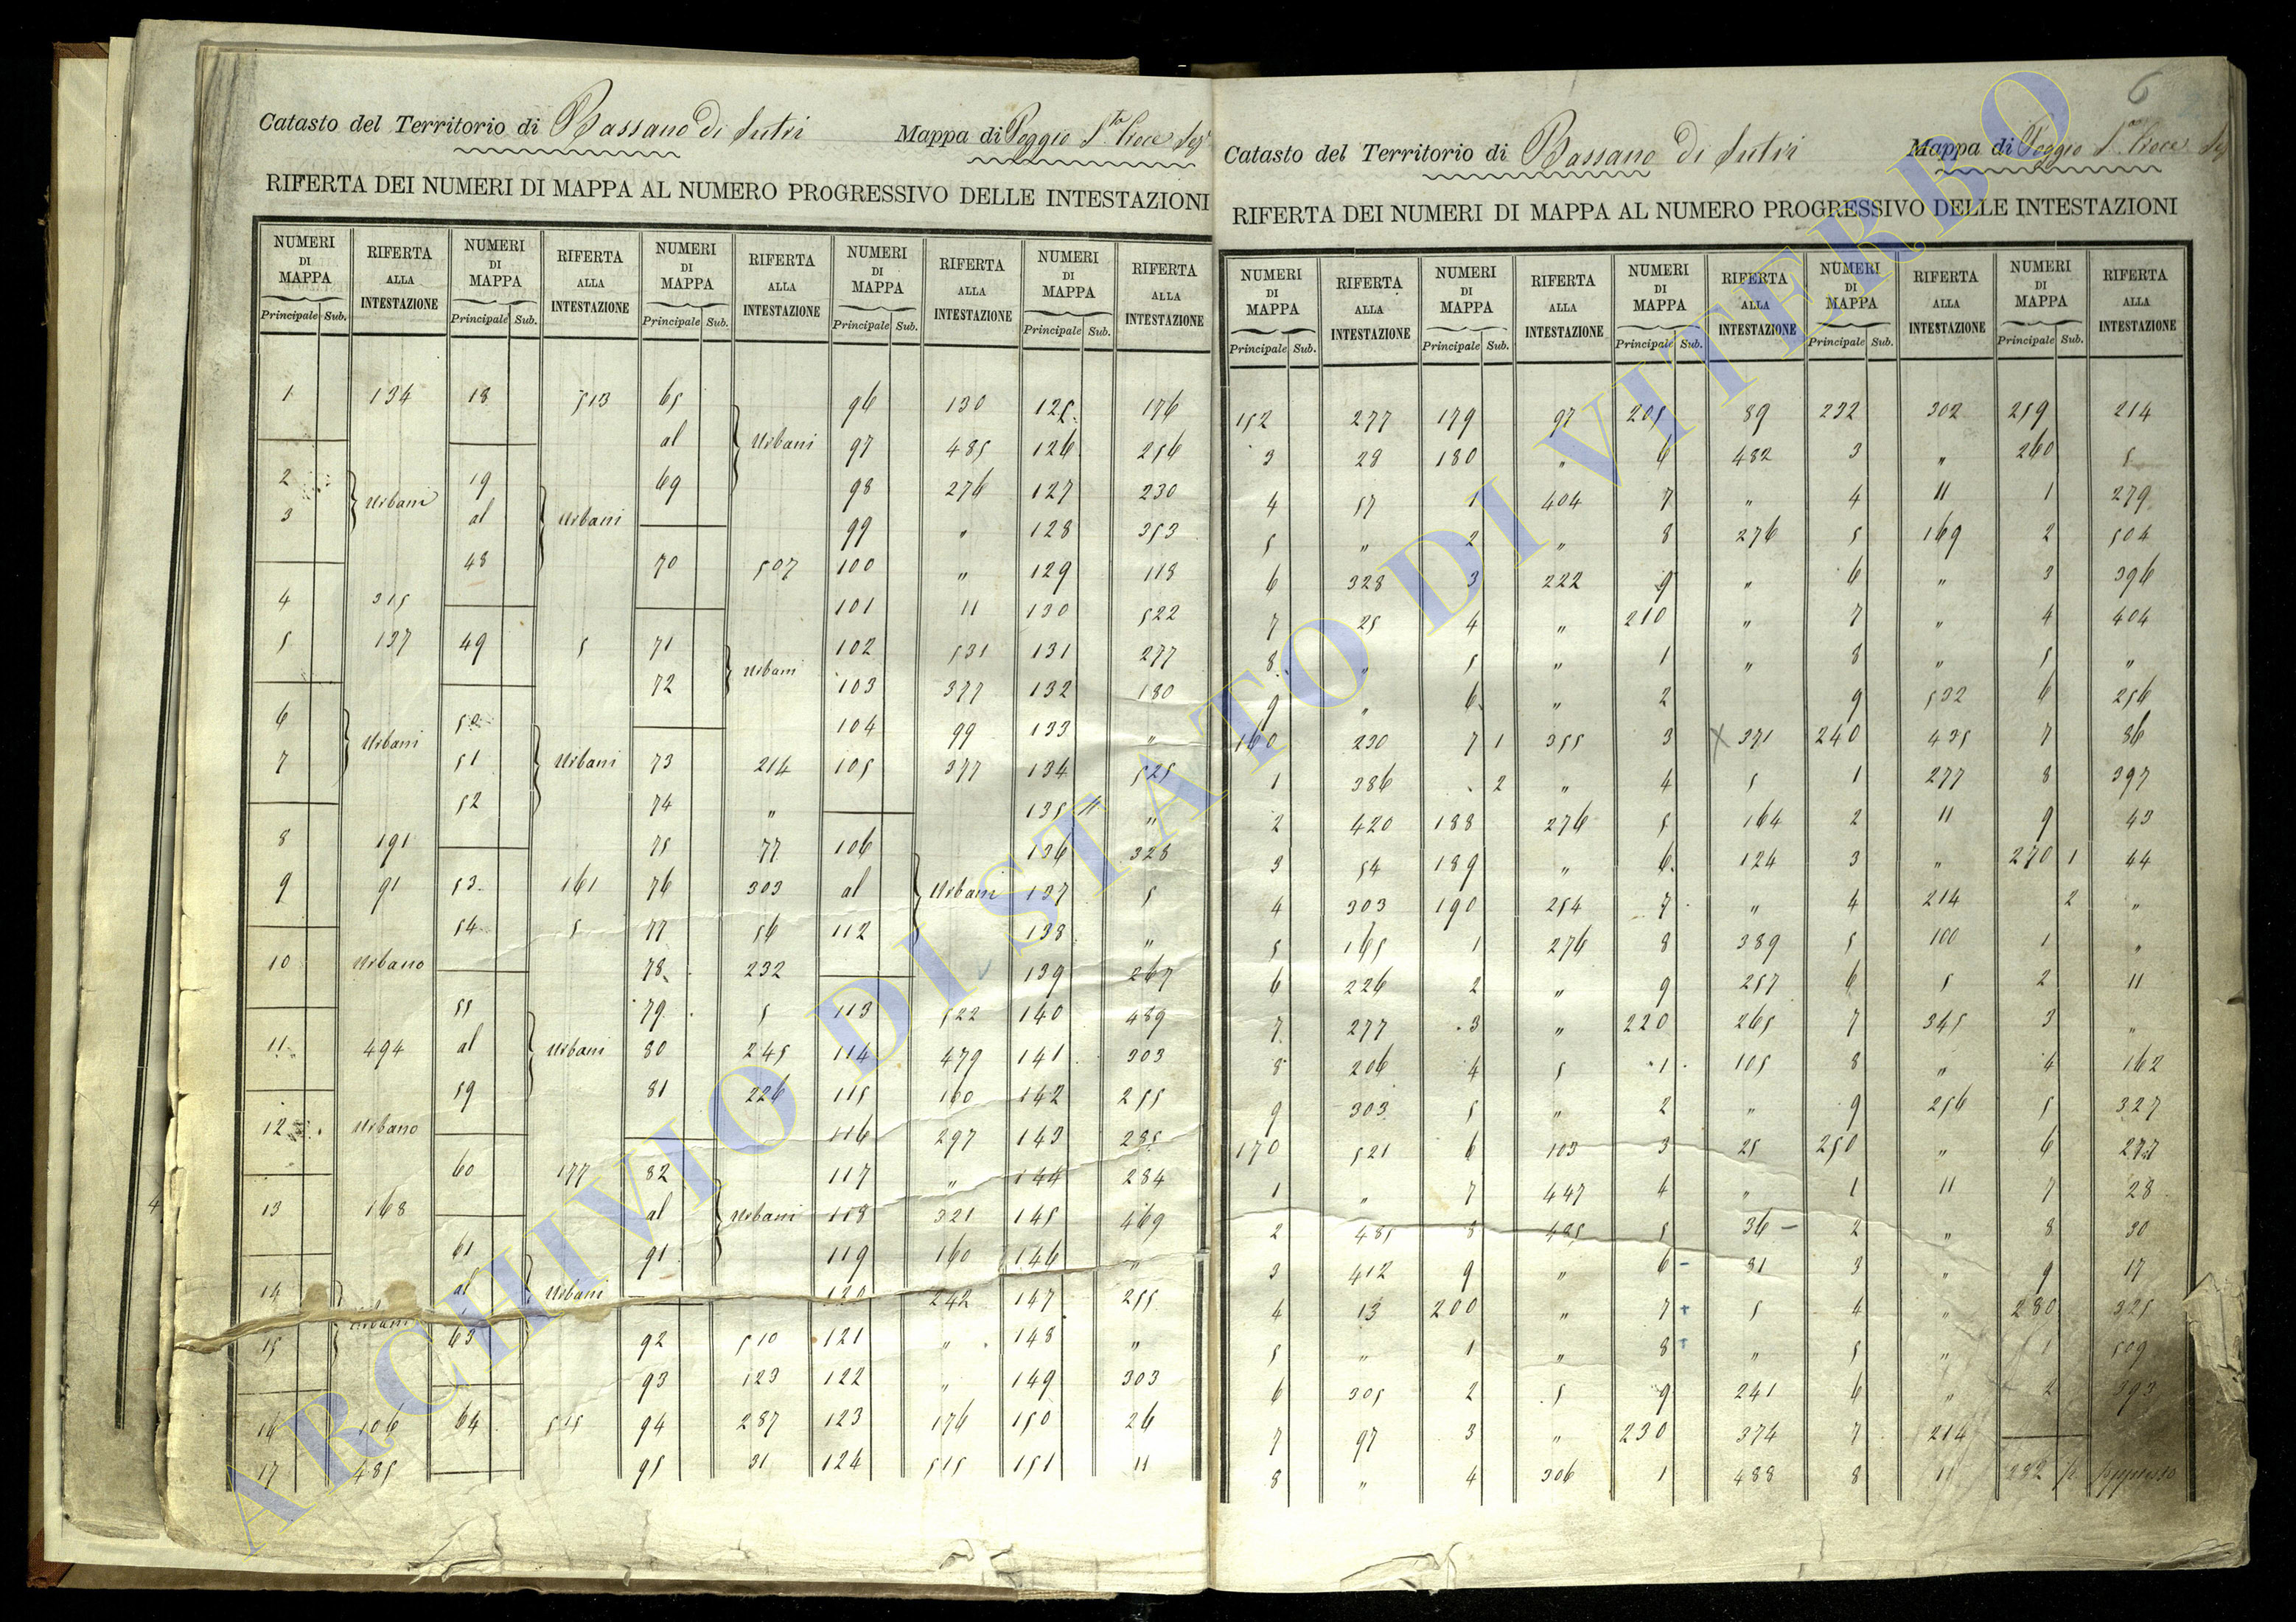 Catasto del Territorio di Bassano di Sutri Mappa di Poggio S.ta Croce
RIFERTA DEI NUMERI DI MAPPA AL NUMERO PROGRESSIVO DELLE INTESTAZIONI
NUMERI DI MAPPA RIFERTA ALLA INTESTAZIONE NUMERI DI MAPPA RIFERTA ALLA INTESTAZIONE NUMERI DI MAPPA RIFERTA ALLA INTESTAZIONE NUMERI DI MAPPA RIFERTA ALLA INTESTAZIONE NUMERI DI MAPPA RIFERTA ALLA INTESTAZIONE
Principale Sub. Principale Sub. Principale Sub. Principale Sub. Principale Sub.
1 134 18 513 65 96 130 125 176
al Urbani 97 485 126 256
2 Urbani 19 69 98 276 127 230
3 al Urbani 99 " 128 353
48 70 507 100 " 129 118
4 315 101 11 130 522
5 137 49 5 71 102 531 131 277
72 Urbani 103 377 132 180
6 Urbani 50 104 99 133 "
7 51 Urbani 73 214 105 377 134 525
52 74 " 135 "
8 191 75 77 106 136 328
9 91 53 161 76 303 al Urbani 137 5
54 5 77 56 112 138 "
10 Urbano 78 232 139 267
55 79 5 113 522 140 489
11 494 al Urbani 80 245 114 479 141 303
59 81 226 115 160 142 255
12 Urbano 116 297 143 285
60 177 82 117 " 144 284
13 168 al Urbani 118 321 145 469
61 91 119 160 146 "
14 Urbani al Urbani 120 242 147 255
15 63 92 510 121 " 148 "
93 123 122 " 149 303
16 106 64 515 94 287 123 176 150 26
17 485 95 31 124 515 151 11
6
Catasto del Territorio di Bassano di Sutri Mappa di Poggio S.ta Croce
RIFERTA DEI NUMERI DI MAPPA AL NUMERO PROGRESSIVO DELLE INTESTAZIONI
NUMERI DI MAPPA RIFERTA ALLA INTESTAZIONE NUMERI DI MAPPA RIFERTA ALLA INTESTAZIONE NUMERI DI MAPPA RIFERTA ALLA INTESTAZIONE NUMERI DI MAPPA RIFERTA ALLA INTESTAZIONE NUMERI DI MAPPA RIFERTA ALLA INTESTAZIONE
Principale Sub. Principale Sub. Principale Sub. Principale Sub. Principale Sub.
152 277 179 97 205 89 232 302 259 214
3 28 180 " 6 482 3 " 260 5
4 57 1 404 7 " 4 11 1 279
5 " 2 " 8 276 5 169 2 504
6 328 3 222 9 " 6 " 3 396
7 25 4 " 210 " 7 " 4 404
8 " 5 " 1 " 8 " 5 "
9 " 6 " 2 9 532 6 256
160 230 7 1 355 3 X 371 240 435 7 86
1 386 2 " 4 5 1 277 8 397
2 420 188 276 5 164 2 11 9 43
3 54 189 " 6 124 3 " 270 1 44
4 303 190 254 7 " 4 214 2 "
5 165 1 276 8 389 5 100 1 "
6 226 2 " 9 257 6 5 2 11
7 277 3 " 220 265 7 345 3 "
8 206 4 5 1 105 8 " 4 162
9 303 5 " 2 " 9 256 5 327
170 521 6 103 3 25 250 " 6 277
1 " 7 447 4 " 1 11 7 28
2 485 8 485 5 36 2 " 8 30
3 412 9 " 6 31 3 " 9 17
4 13 200 " 7 5 4 " 280 325
5 " 1 " 8 " 5 " 1 509
6 305 2 5 9 241 6 " 2 393
7 97 3 " 230 374 7 214
8 " 4 306 1 488 8 11 282
4
ARCHIVIO DI STATO DI VITERBO